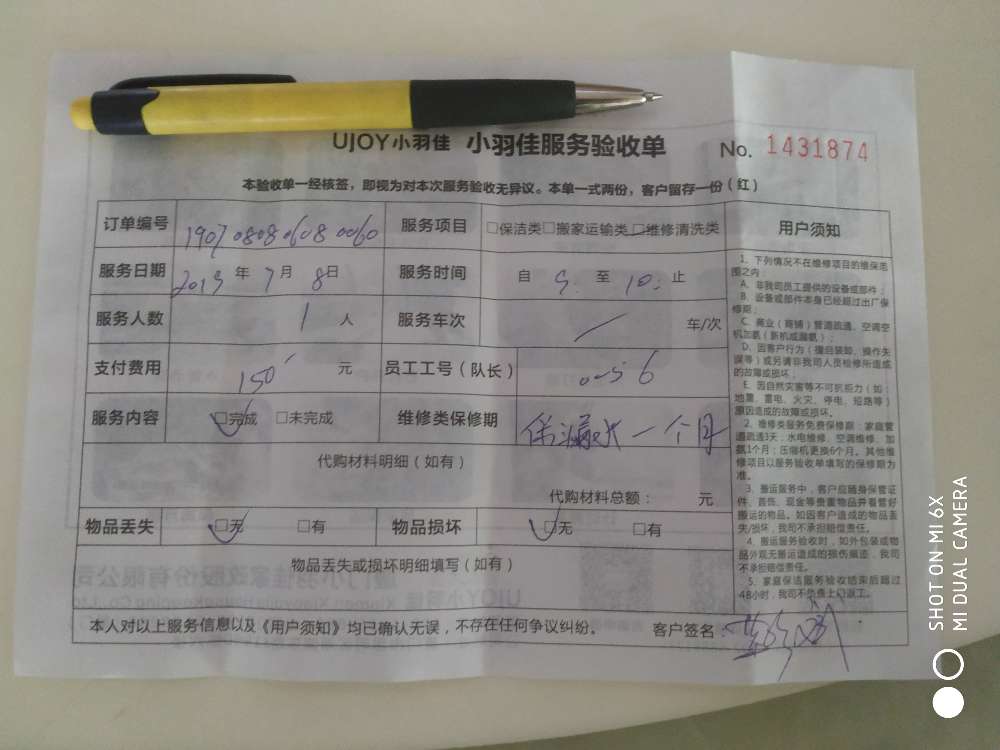 UJOY小羽佳 小羽佳服务验收单 No. 1431874
本验收单一经核签，即视为对本次服务验收无异议。本单一式两份，客户留存一份（红）
订单编号 190708080608 0060 服务项目 □保洁类□搬家运输类□维修清洗类
服务日期 2019 年 7 月 8 日 服务时间 自 9: 至 10: 止
服务人数 1 人 服务车次 / 车/次
支付费用 150 元 员工工号（队长） 0056
服务内容 □完成 □未完成 维修类保修期 保漏水一个月
代购材料明细（如有）
代购材料总额： 元
物品丢失 □无 □有 物品损坏 □无 □有
物品丢失或损坏明细填写（如有）
本人对以上服务信息以及《用户须知》均已确认无误，不存在任何争议纠纷。 客户签名：
用户须知
1、下列情况不在维修项目的维保范
围之内：
A、非我司员工提供的设备或部件；
B、设备或部件本身已经超过出厂保
修期；
C、商业（商铺）管道疏通、空调空
机加氨（新机或漏氨）；
D、因客户行为（擅自装卸、操作失
误等）或另请非我司人员检修所造成
的故障或损坏；
E、因自然灾害等不可抗拒力（如：
地震、雷电、火灾、停电、短路等）
原因造成的故障或损坏。
2、维修类服务免费保修期：家庭管
道疏通3天；水电维修、空调维修、加
氨1个月；压缩机更换6个月。其他维
修项目以服务验收单填写的保修期为
准。
3、搬运服务中，客户应随身保管证
件、首饰、现金等贵重物品并看管好
搬运的物品。如因客户造成的物品丢
失/损坏，我司不承担赔偿责任。
4、搬运服务验收时，如外包装或物
品外观无搬运造成的损伤痕迹，我司
不承担赔偿责任。
5、家庭保洁服务验收结束后超过
48小时，我司不负责上门返工。
SHOT ON MI 6X
MI DUAL CAMERA